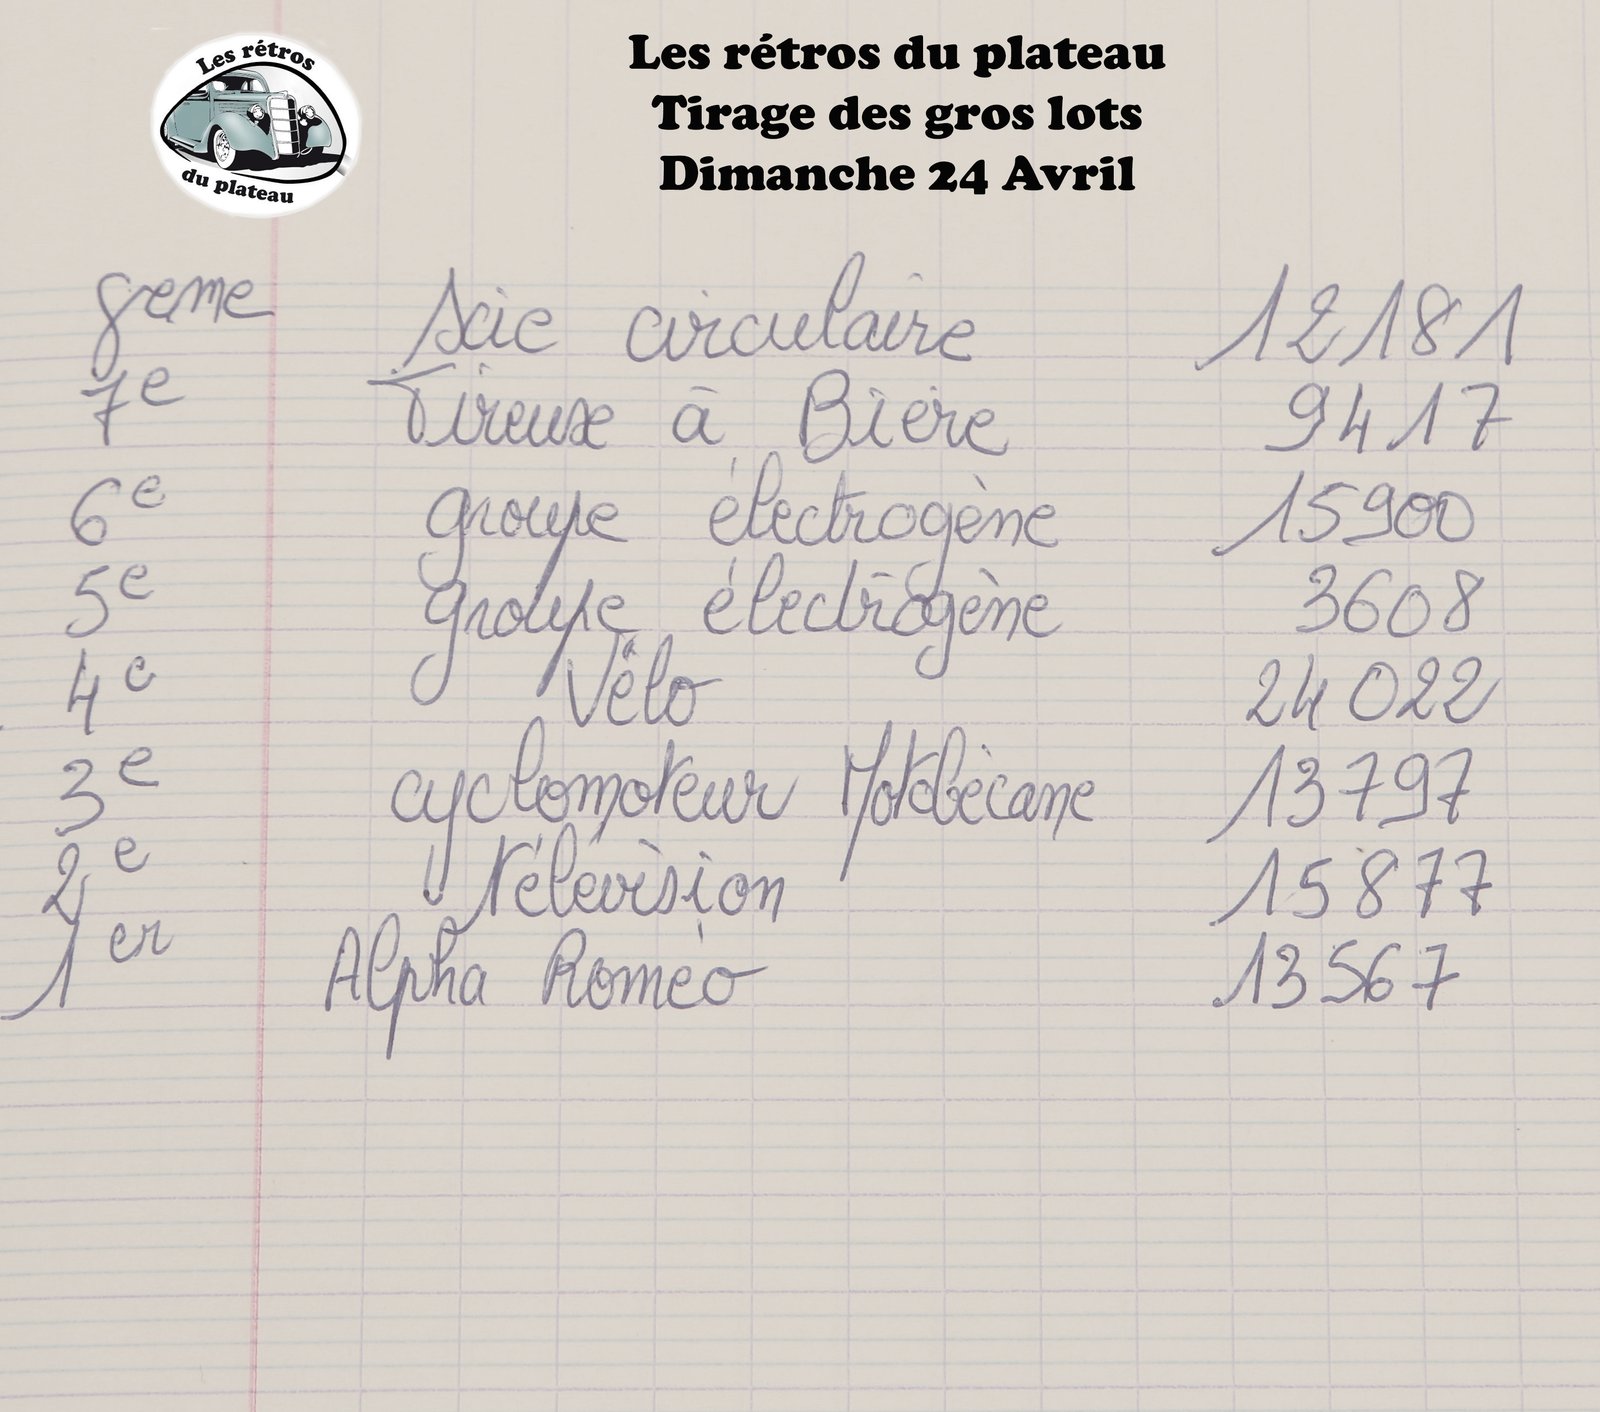 Les rétros
du plateau
Les rétros du plateau
Tirage des gros lots
Dimanche 24 Avril
8eme scie circulaire 12181
7e Tireuse à Bière 9417
6e groupe électrogène 15900
5e groupe électrogène 3608
4e Vélo 24022
3e cyclomoteur Motobècane 13797
2e télévision 15877
1er Alpha Roméo 13567